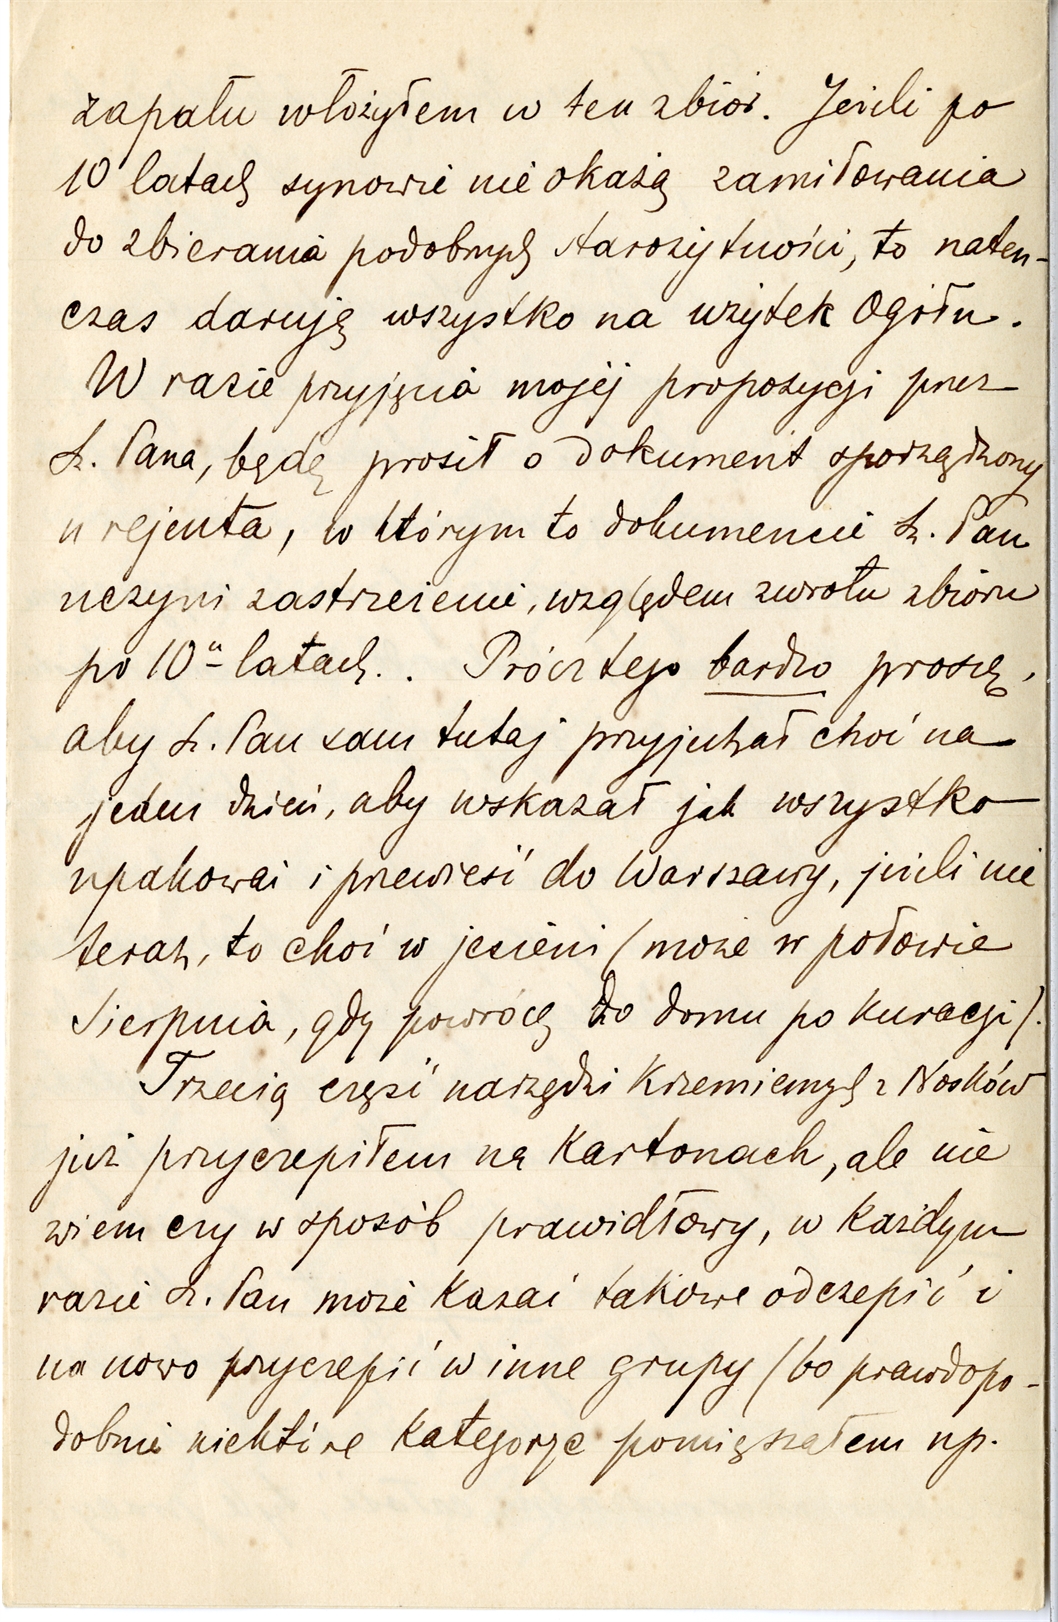 zapału włożyłem w ten zbiór. Jeżeli po
10 latach synowie nie okażą zamiłowania
do zbierania podobnych starożytności, to naten-
czas daruję wszystko na użytek Ogółu.
W razie przyjęcia mojéj propozycji przez
Sz. Pana, będę prosił o dokument sporządzony
u rejenta, w którym to dokumencie Sz. Pan
uczyni zastrzeżenie, względem zwrotu zbioru
po 10u latach. . Prócz tego bardzo proszę,
aby Sz. Pan sam tutaj przyjechał choć na
jeden dzień, aby wskazał jak wszystko
upakować i przewieść do Warszawy, jeżeli nie
teraz, to choć w jesieni (może w połowie
Sierpnia, gdy powrócę do domu po kuracji).
Trzecią część narzędzi krzemiennych z Nosków
już przyczepiłem na kartonach, ale nie
wiem czy w sposób prawidłowy, w każdym
razie Sz. Pan może kazać takowe odczepić i
na nowo przyczepić w inne grupy (bo prawdopo-
dobnie niektóre kategorye pomięszałem np.